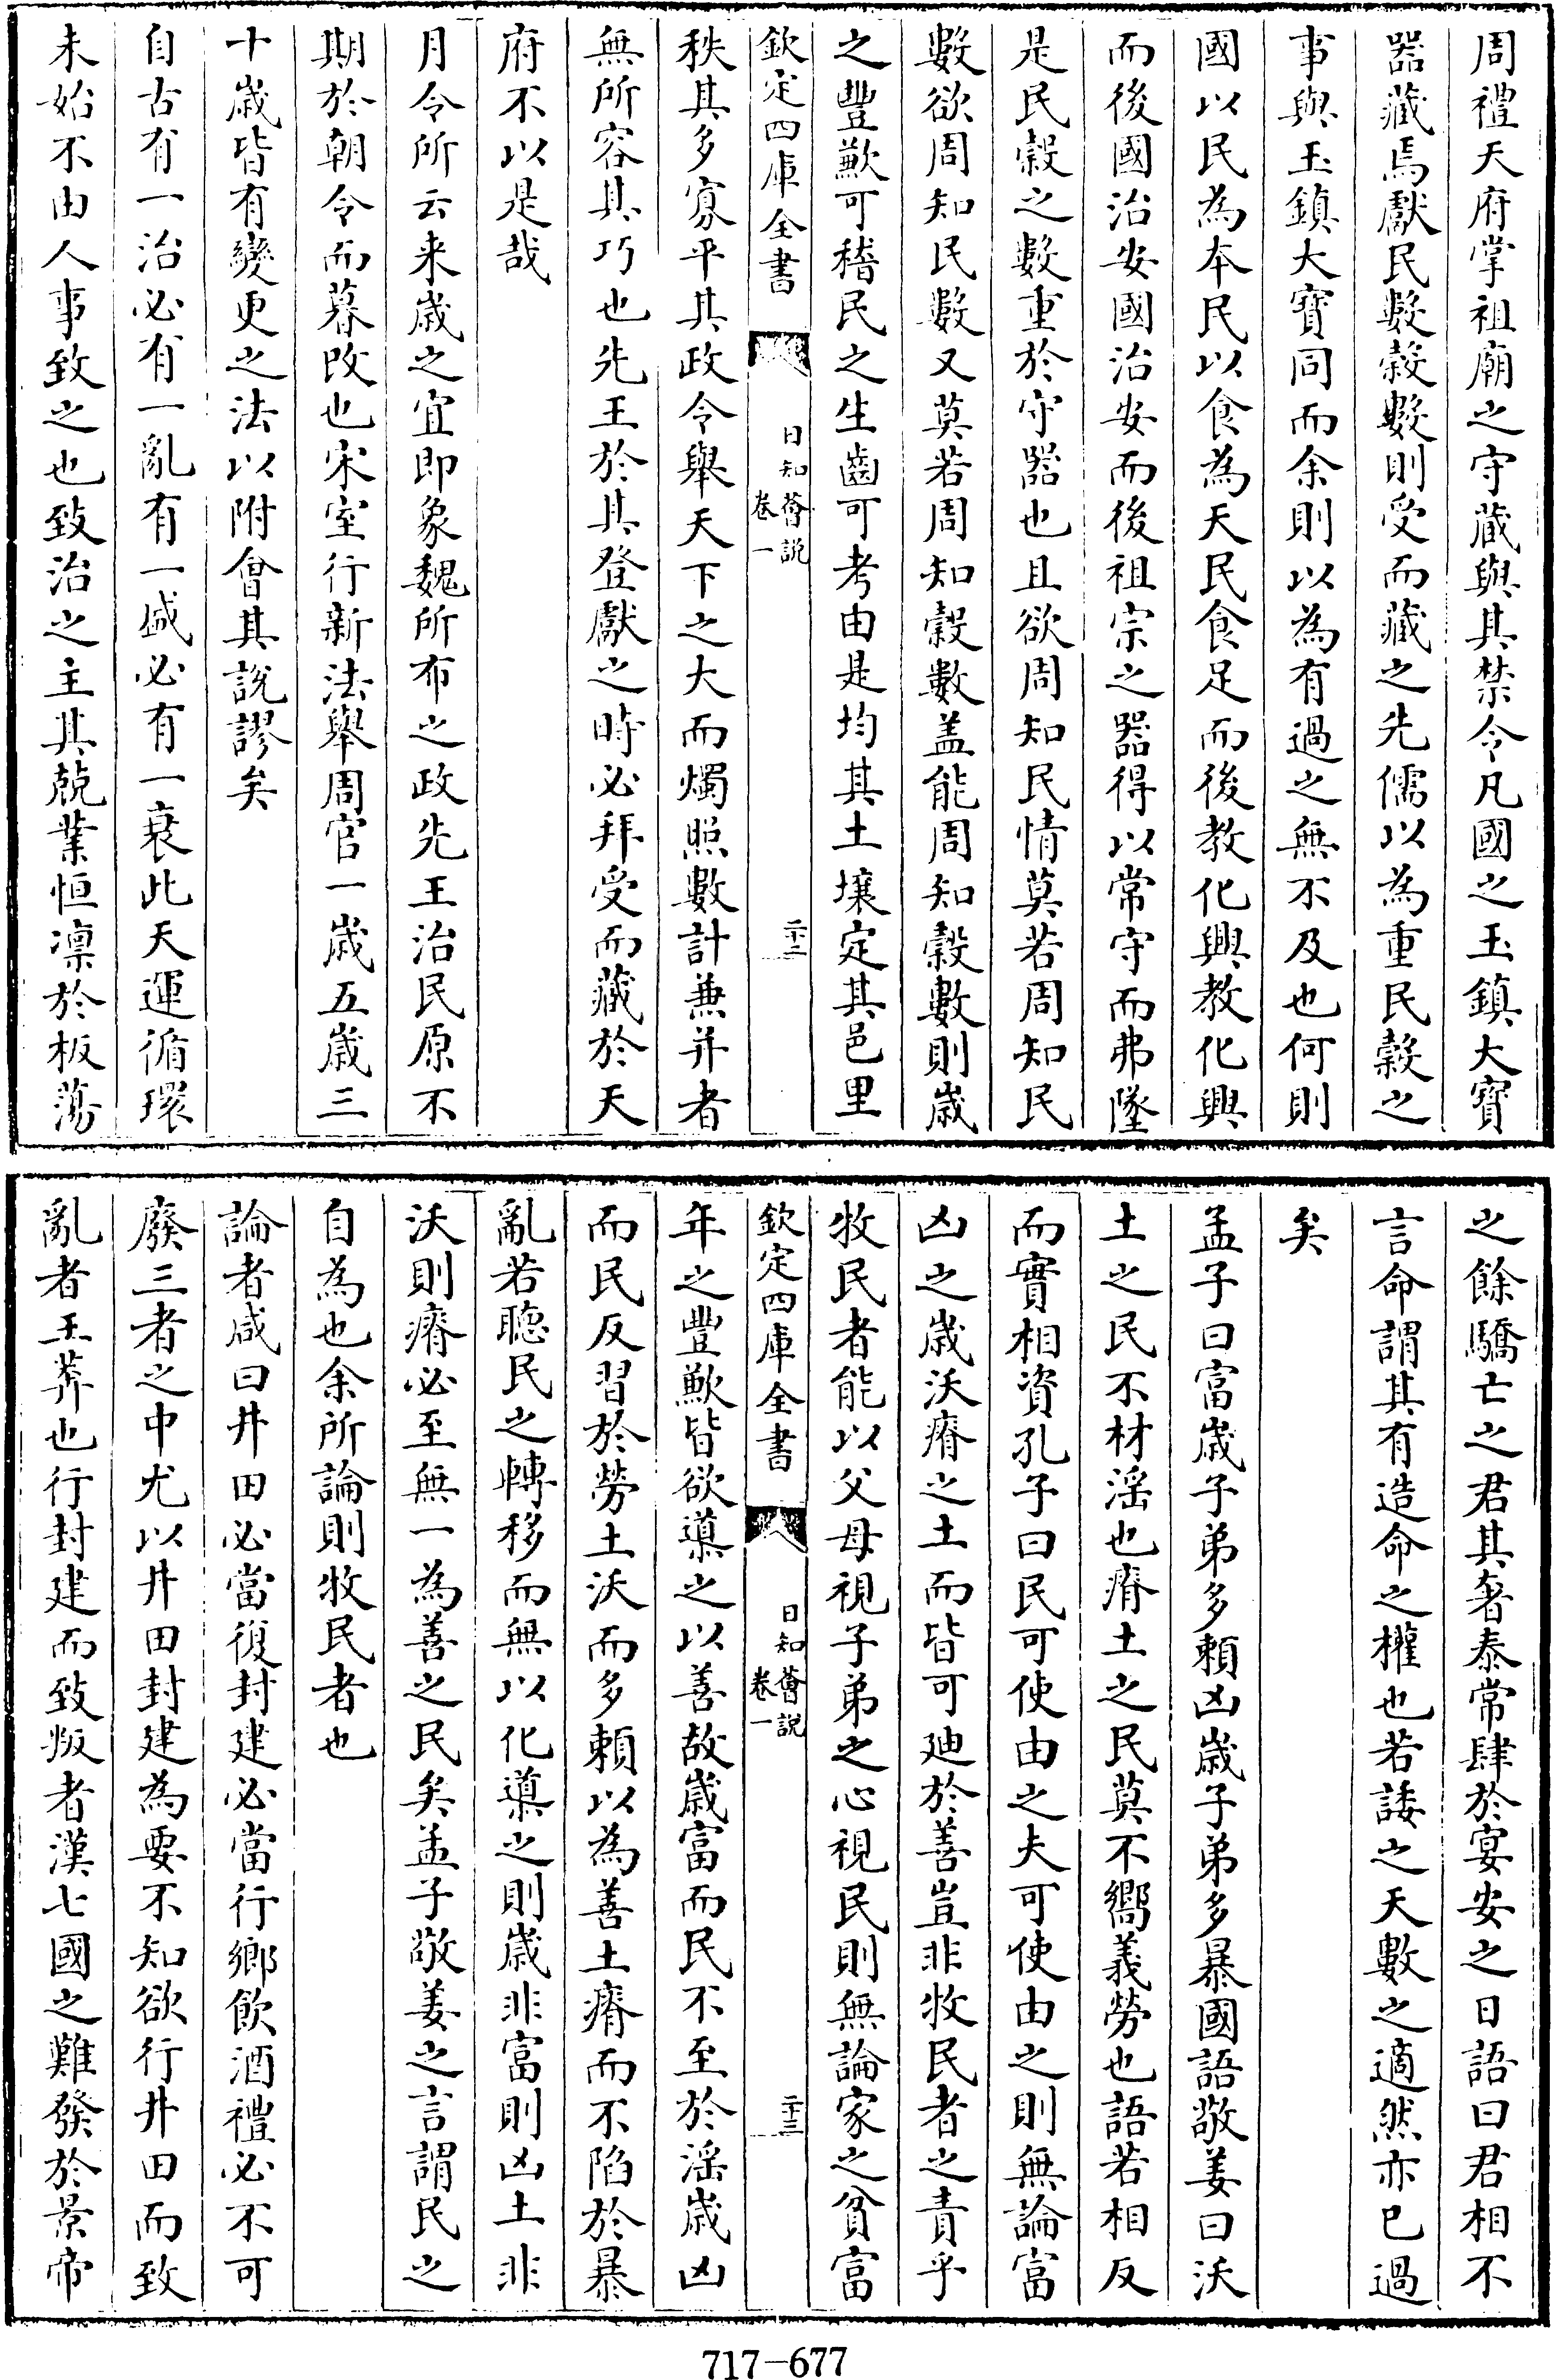 周禮天府掌祖廟之守藏與其禁令凡國之玉鎮大寶
器藏焉獻民數穀數則受而藏之先儒以為重民穀之
事與玉鎮大寶同而余則以為有過之無不及也何則
國以民為本民以食為天民食足而後教化興教化興
而後國治安國治安而後祖宗之器得以常守而弗墜
是民穀之數重於守器也且欲周知民情莫若周知民
數欲周知民數又莫若周知穀數盖能周知穀數則歲
之豐歉可稽民之生齒可考由是均其土壤定其邑里
欽定四庫全書
日知薈說
卷一
二十二
秩其多寡平其政令舉天下之大而燭照數計兼并者
無所容其巧也先王於其登獻之時必拜受而藏於天
府不以是哉
月令所云来歲之宜即象魏所布之政先王治民原不
期於朝令而暮改也宋室行新法舉周官一歲五歲三
十歲皆有變更之法以附會其說謬矣
自古有一治必有一亂有一盛必有一衰此天運循環
未始不由人事致之也致治之主其兢業恒凛於板蕩
之餘驕亡之君其奢泰常肆於宴安之日語曰君相不
言命謂其有造命之權也若諉之天數之適然亦已過
矣
孟子曰富歲子弟多賴凶歲子弟多暴國語敬姜曰沃
土之民不材淫也瘠土之民莫不嚮義勞也語若相反
而實相資孔子曰民可使由之夫可使由之則無論富
凶之歲沃瘠之土而皆可廸於善豈非牧民者之責乎
牧民者能以父母視子弟之心視民則無論家之貧富
欽定四庫全書
日知薈說
卷一
二十三
年之豐歉皆欲導之以善故歲富而民不至於淫歲凶
而民反習於勞土沃而多賴以為善土瘠而不陷於暴
亂若聽民之轉移而無以化導之則歲非富則凶土非
沃則瘠必至無一為善之民矣孟子敬姜之言謂民之
自為也余所論則牧民者也
論者咸曰井田必當復封建必當行鄉飲酒禮必不可
廢三者之中尤以井田封建為要不知欲行井田而致
亂者王莽也行封建而致叛者漢七國之難發於景帝
717-677